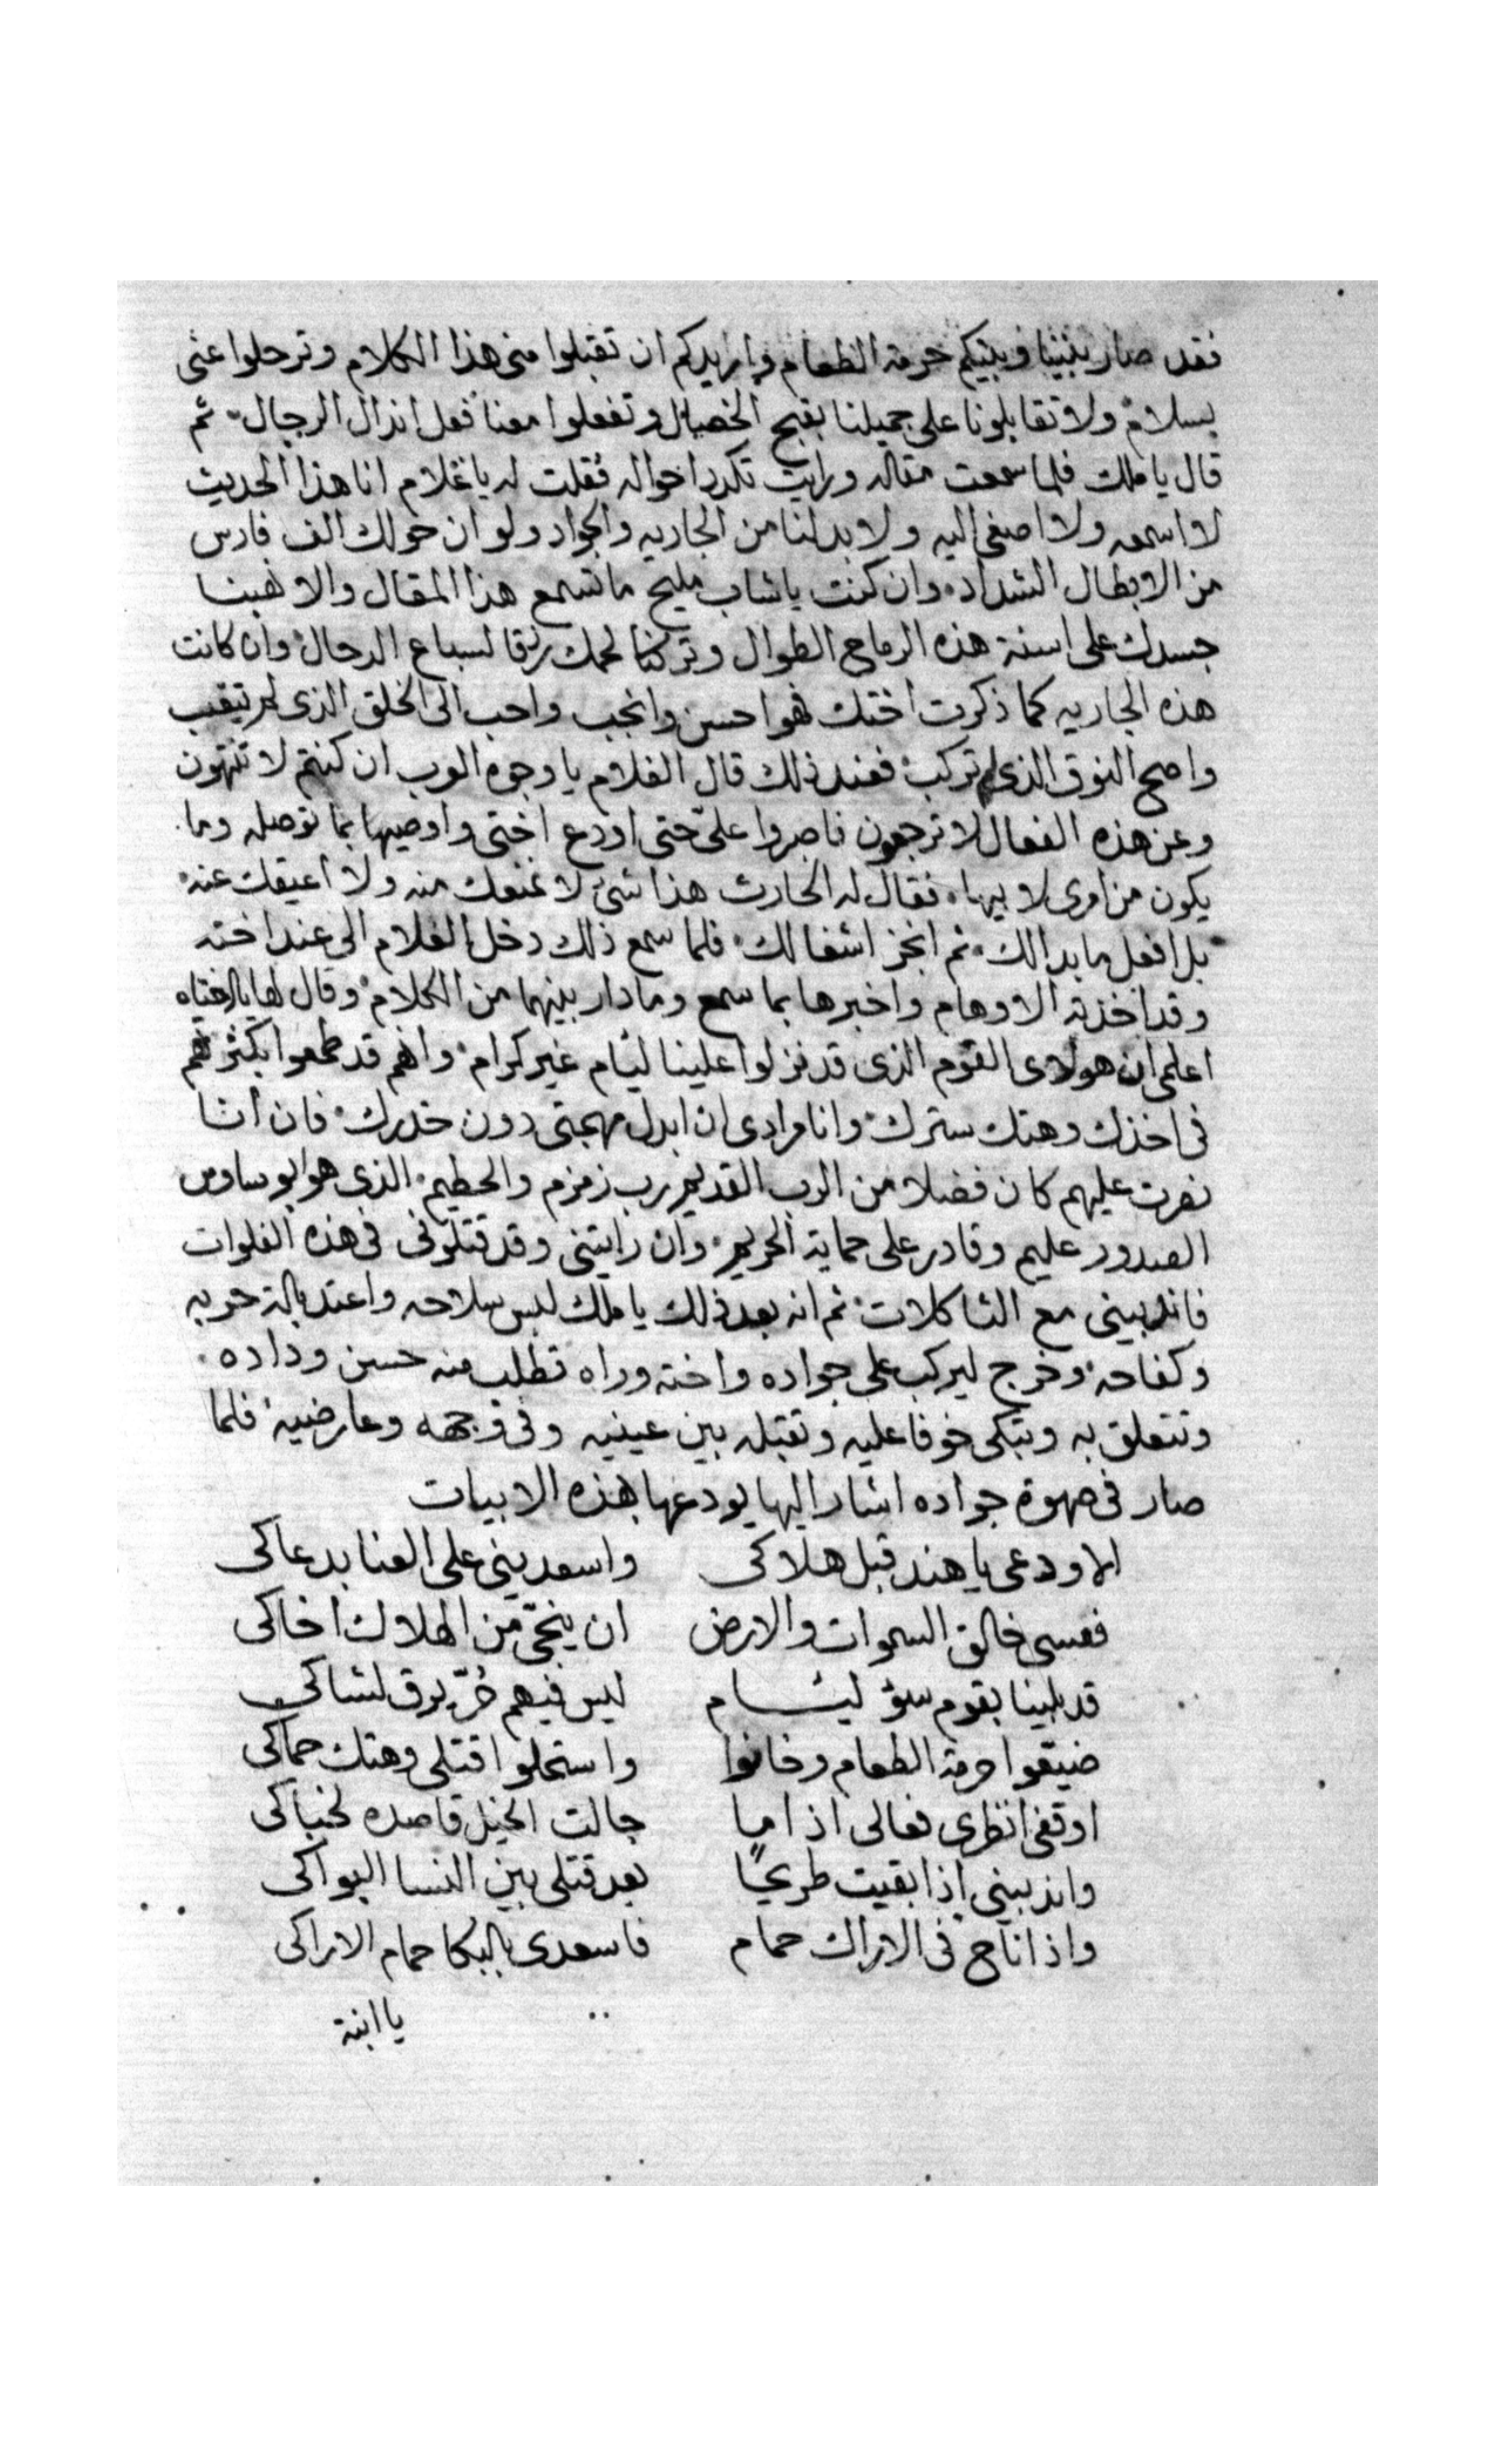 فقد صار بيننا وبينكم حرمة الطعام واريدكم ان تقبلوا منى هذا الكلام وترحلوا عنى
بسلام ولا تقابلونا على جميلنا بقبح الخصال وتفعلوا معنا فعل انذال الرجال ثم
قال يا ملك فلما سمعت مقاله ورايت تكدر احواله فقلت له يا غلام انا هذا الحديث
لا اسمعه ولا اصغى اليه ولا بد لنا من الجاريه والجواد ولو ان حولك الف فارس
من الابطال الشداد وان كنت يا شاب مليح ما تسمع هذا المقال والا نهبنا
جسدك على اسنة هذه الرماح الطوال وتركنا لحمك رزقا لسباع الدحال وان كانت
هذه الجاريه كما ذكرت اختك فهو احسن وانجب واحب الى الخلق الذى لم تيقب
واصح النوق الذى لم تركب فعند ذلك قال الغلام يا وجوه العرب ان كنتم لا تنتهون
وعن هذه الفعال لا ترجعون فاصبروا علىّ حتى اودع اختى واوصيها بما توصله وما
يكون من امرى لابيها فقال له الحارث هذا شئ لا نمنعك منه ولا اعيقك عنه
بل افعل ما بدا لك ثم انجز اشغالك فلما سمع ذلك دخل الغلام الى عند اخته
وقد اخذته الاوهام واخبرها بما سمع وما دار بينهما من الكلام وقال لها
اعلمى ان هولاى القوم الذى قد نزلوا علينا ليام غير كرام وانهم قد طمعوا بكثرتهم
فى اخذك وهتك سترك وانا مرادى ان ابدل مهجتى دون خدرك فان انا
نصرت عليهم كان فضلا من الرب القديم رب زمزم والحطيم الذى هو بوساوس
الصدور عليم وقادر على حماية الحريم وان رايتنى وقد قتلونى فى هذه الفلوات
فاندبينى مع الثاكلات ثم انه بعد ذلك يا ملك لبس سلاحه واعتد بالة حربه
وكفاحه وخرج ليركب على جواده واخته وراه تطلب منه حسن وداده
وتتعلق به وتبكى خوفا عليه وتقبله بين عينيه وفى وجهه وعارضيه فلما
صار فى صهوة جواده اشار اليها يودعها بهذه الابيات
الا ودعى يا هند قبل هلاكى واسعدينى على العنا بدعاكى
فعسى خالق السموات والارض ان ينجّى من الهلاك اخاكى
قد بلينا بقوم سؤ ليام ليس فيهم حُرّ يرق لشاكى
ضيعوا حرمة الطعام وخانوا واستحلوا قتلى وهتك حماكى
اوقفى انظرى فعالى اذا ما جالت الخيل قاصده لخباكى
واندبينى اذا بقيت طريحًا بعد قتلى بين النسا البواكى
واذا ناح فى الاراك حمام فاسعدى بالبكا حمام الاراكى
يا ابنة